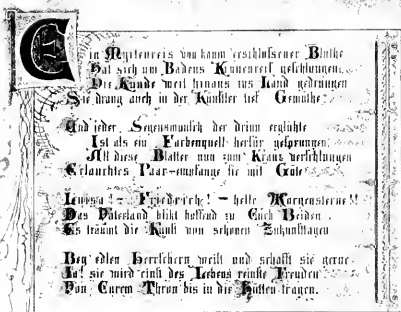 Ein Myrtenreis von kaum erschlossener Blüthe
Hat sich um Badens Kronenreif geschlungen;
Die Kunde weit hinaus ins Land gedrungen
Sie drang auch in der Künstler tief Gemüthe:
Und jeder Segenswunsch der drinn erglühte
Ist als ein Farbenquell herfür gesprungen,
All diese Blätter nun zum Kranz verschlungen
Erlauchtes Paar – empfange sie mit Güte
Louisa! – Friedrich! – helle Morgensterne!!
Das Vaterland blikt hoffend zu Euch Beiden.
Es träumt die Kunst von schönen Zukunfttagen
Bey edlen Herrschern weilt und schafft sie gerne
Ja! sie wird einst des Lebens reinste Freuden
Von Eurem Thron bis in die Hütten tragen.